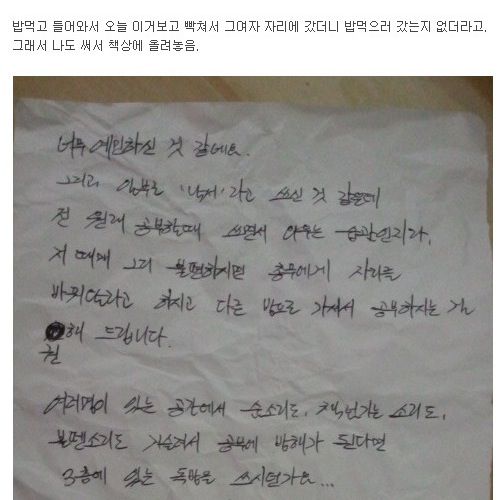 밥먹고 들어와서 오늘 이거보고 빡쳐서 그여자 자리에 갔더니 밥먹으러 갔는지 없더라고.
그래서 나도 써서 책상에 올려놓음.
너무 예민하신 것 같네요.
그리고 일부로 '낙서'라고 쓰신 것 같은데
전 원래 공부할때 쓰면서 외우는 습관인지라,
저 때매 그리 불편하시면 총무에게 자리를
바꿔달라고 하시고 다른 방으로 가셔서 공부하시는 걸
해 드립니다.
권
여러명이 있는 공간에서 숨소리도, 책넘기는 소리도,
볼펜소리도 거슬려서 공부에 방해가 된다면
3층에 있는 독방을 쓰시던가요...